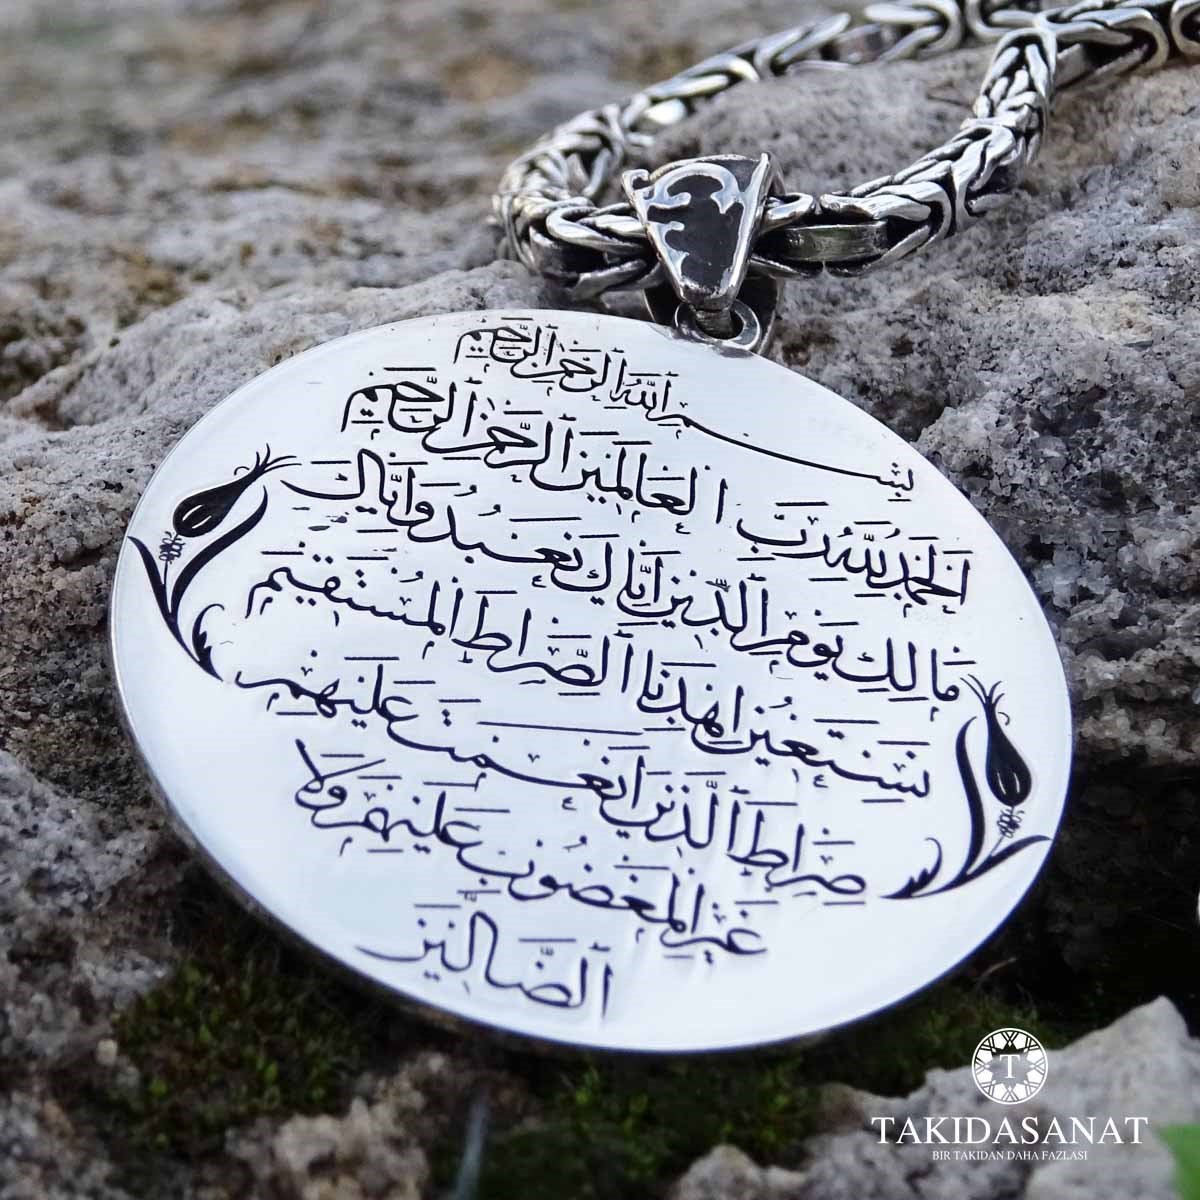 بِسْمِ اللَّهِ الرَّحْمَنِ الرَّحِيمِ
الْحَمْدُ لِلَّهِ رَبِّ الْعَالَمِينَ الرَّحْمَنِ الرَّحِيمِ
مَالِكِ يَوْمِ الدِّينِ إِيَّاكَ نَعْبُدُ وَإِيَّاكَ
نَسْتَعِينُ اِهْدِنَا الصِّرَاطَ الْمُسْتَقِيمَ
صِرَاطَ الَّذِينَ أَنْعَمْتَ عَلَيْهِمْ
غَيْرِ الْمَغْضُوبِ عَلَيْهِمْ وَلَا
الضَّالِّينَ
T
TAKIDASANAT
BIR TAKIDAN DAHA FAZLASI